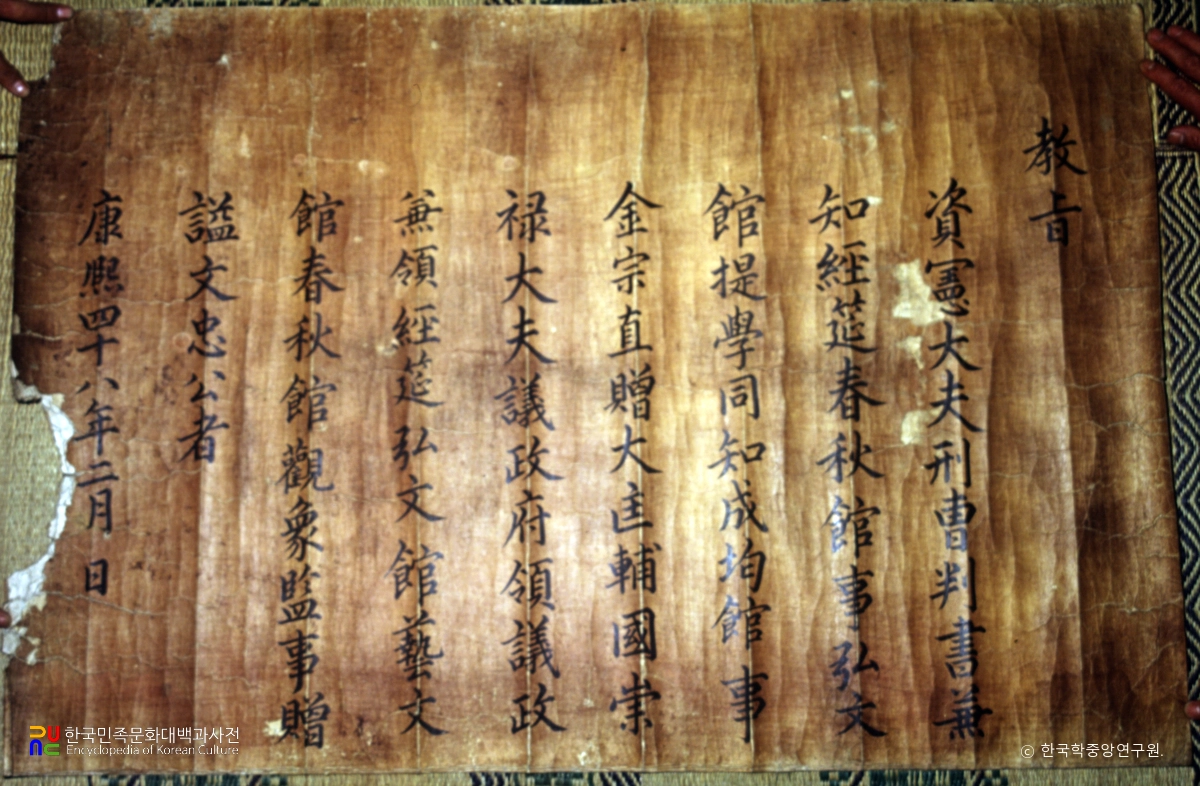 教旨
資憲大夫刑曹判書兼
知經筵春秋館事弘文
館提學同知成均館事
金宗直贈大匡輔國崇
禄大夫議政府領議政
兼領經筵弘文館藝文
館春秋館觀象監事贈
諡文忠公者
康熙四十八年二月 日
한국민족문화대백과사전
Encyclopedia of Korean Culture
© 한국학중앙연구원.